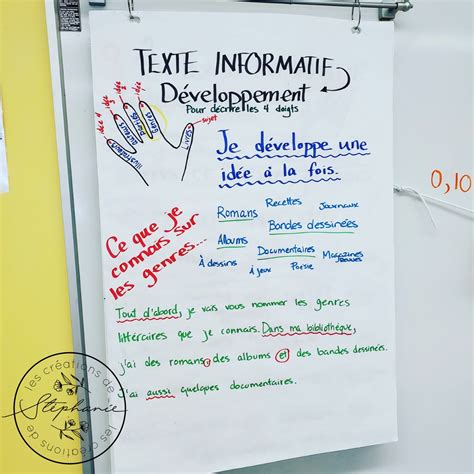 TEXTE INFORMATIF
Développement
Pour décrire les 4 doigts
sujet
idée 1
idée 2
idée 3
idée 4
Livres
Genres
auteurs
illustrateurs
Je développe une
idée à la fois.
0,10
Ce que je
connais sur
les genres...
Romans Recettes Journaux
Bandes dessinées
Albums
Documentaires Magazines
À dessins à jeux Poésie
Tout d'abord, je vais vous nommer les genres
littéraires que je connais. Dans ma bibliothèque,
j'ai des romans, des albums et des bandes dessinées.
J'ai aussi quelques documentaires.
Les créations de
Stéphanie
Les créations de